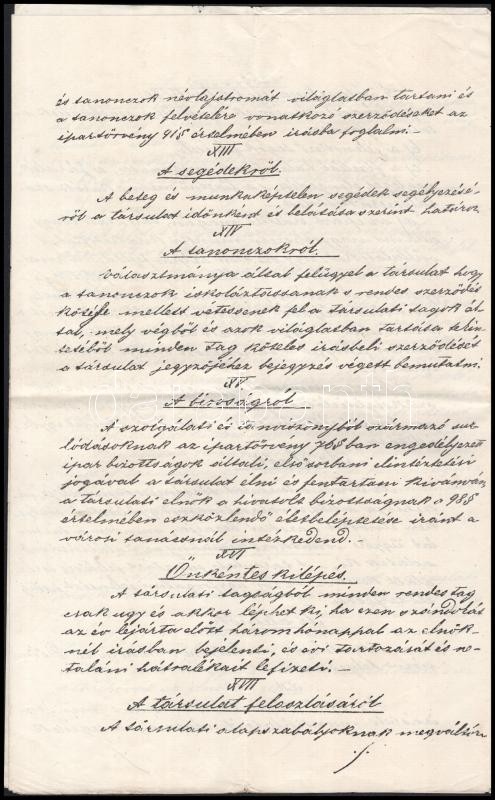 és tanonczok névlajstromát világlatban tartani és
a tanonczok felvételére vonatkozó szerződéseket az
ipartörvény 61§ értelmében irásba foglalni.–
XIII
A segédekről.
A beteg és munkaképtelen segédek segélyezésé-
ről a társulat időnként és belátása szerint határoz
XIV
A tanonczokról.
Választmánya által felügyel a társulat hogy
a tanonczok iskoláztassanak s rendes szerződés
mellett vétessenek fel a társulati tagok ál-
tal, mely végből és azok világlatban tartása tekin-
tetéből minden tag köteles irásbeli szerződését
a társulat jegyzőjéhez bejegyzés végett bemutatni.
XV
A bizoságról
A szolgálati és tanviszonyból származó sur-
lódásoknak az ipartörvény 76§ban engedélyezett
ipar bizottságok általi, elsősorbani elintéztetési
jogával a társulat élni és fentartani kivánván,
a társulati elnök a hivatolt bizottságnak a 98§
értelmében eszközlendő életbeléptetése iránt a
városi tanácsnál intézkedend.–
XVI
Önkéntes kilépés.
A társulati tagságból minden rendes tag
csak ugy és akkor léphet ki, ha ezen szándokát
az év lejárta előtt három hónappal az elnök-
nél irásban bejelenti, és évi tartozását és ne-
taláni hátralékait lefizeti.–
XVII
A társulat feloszlásáról
A társulati alapszabályoknak megváltoz
./.